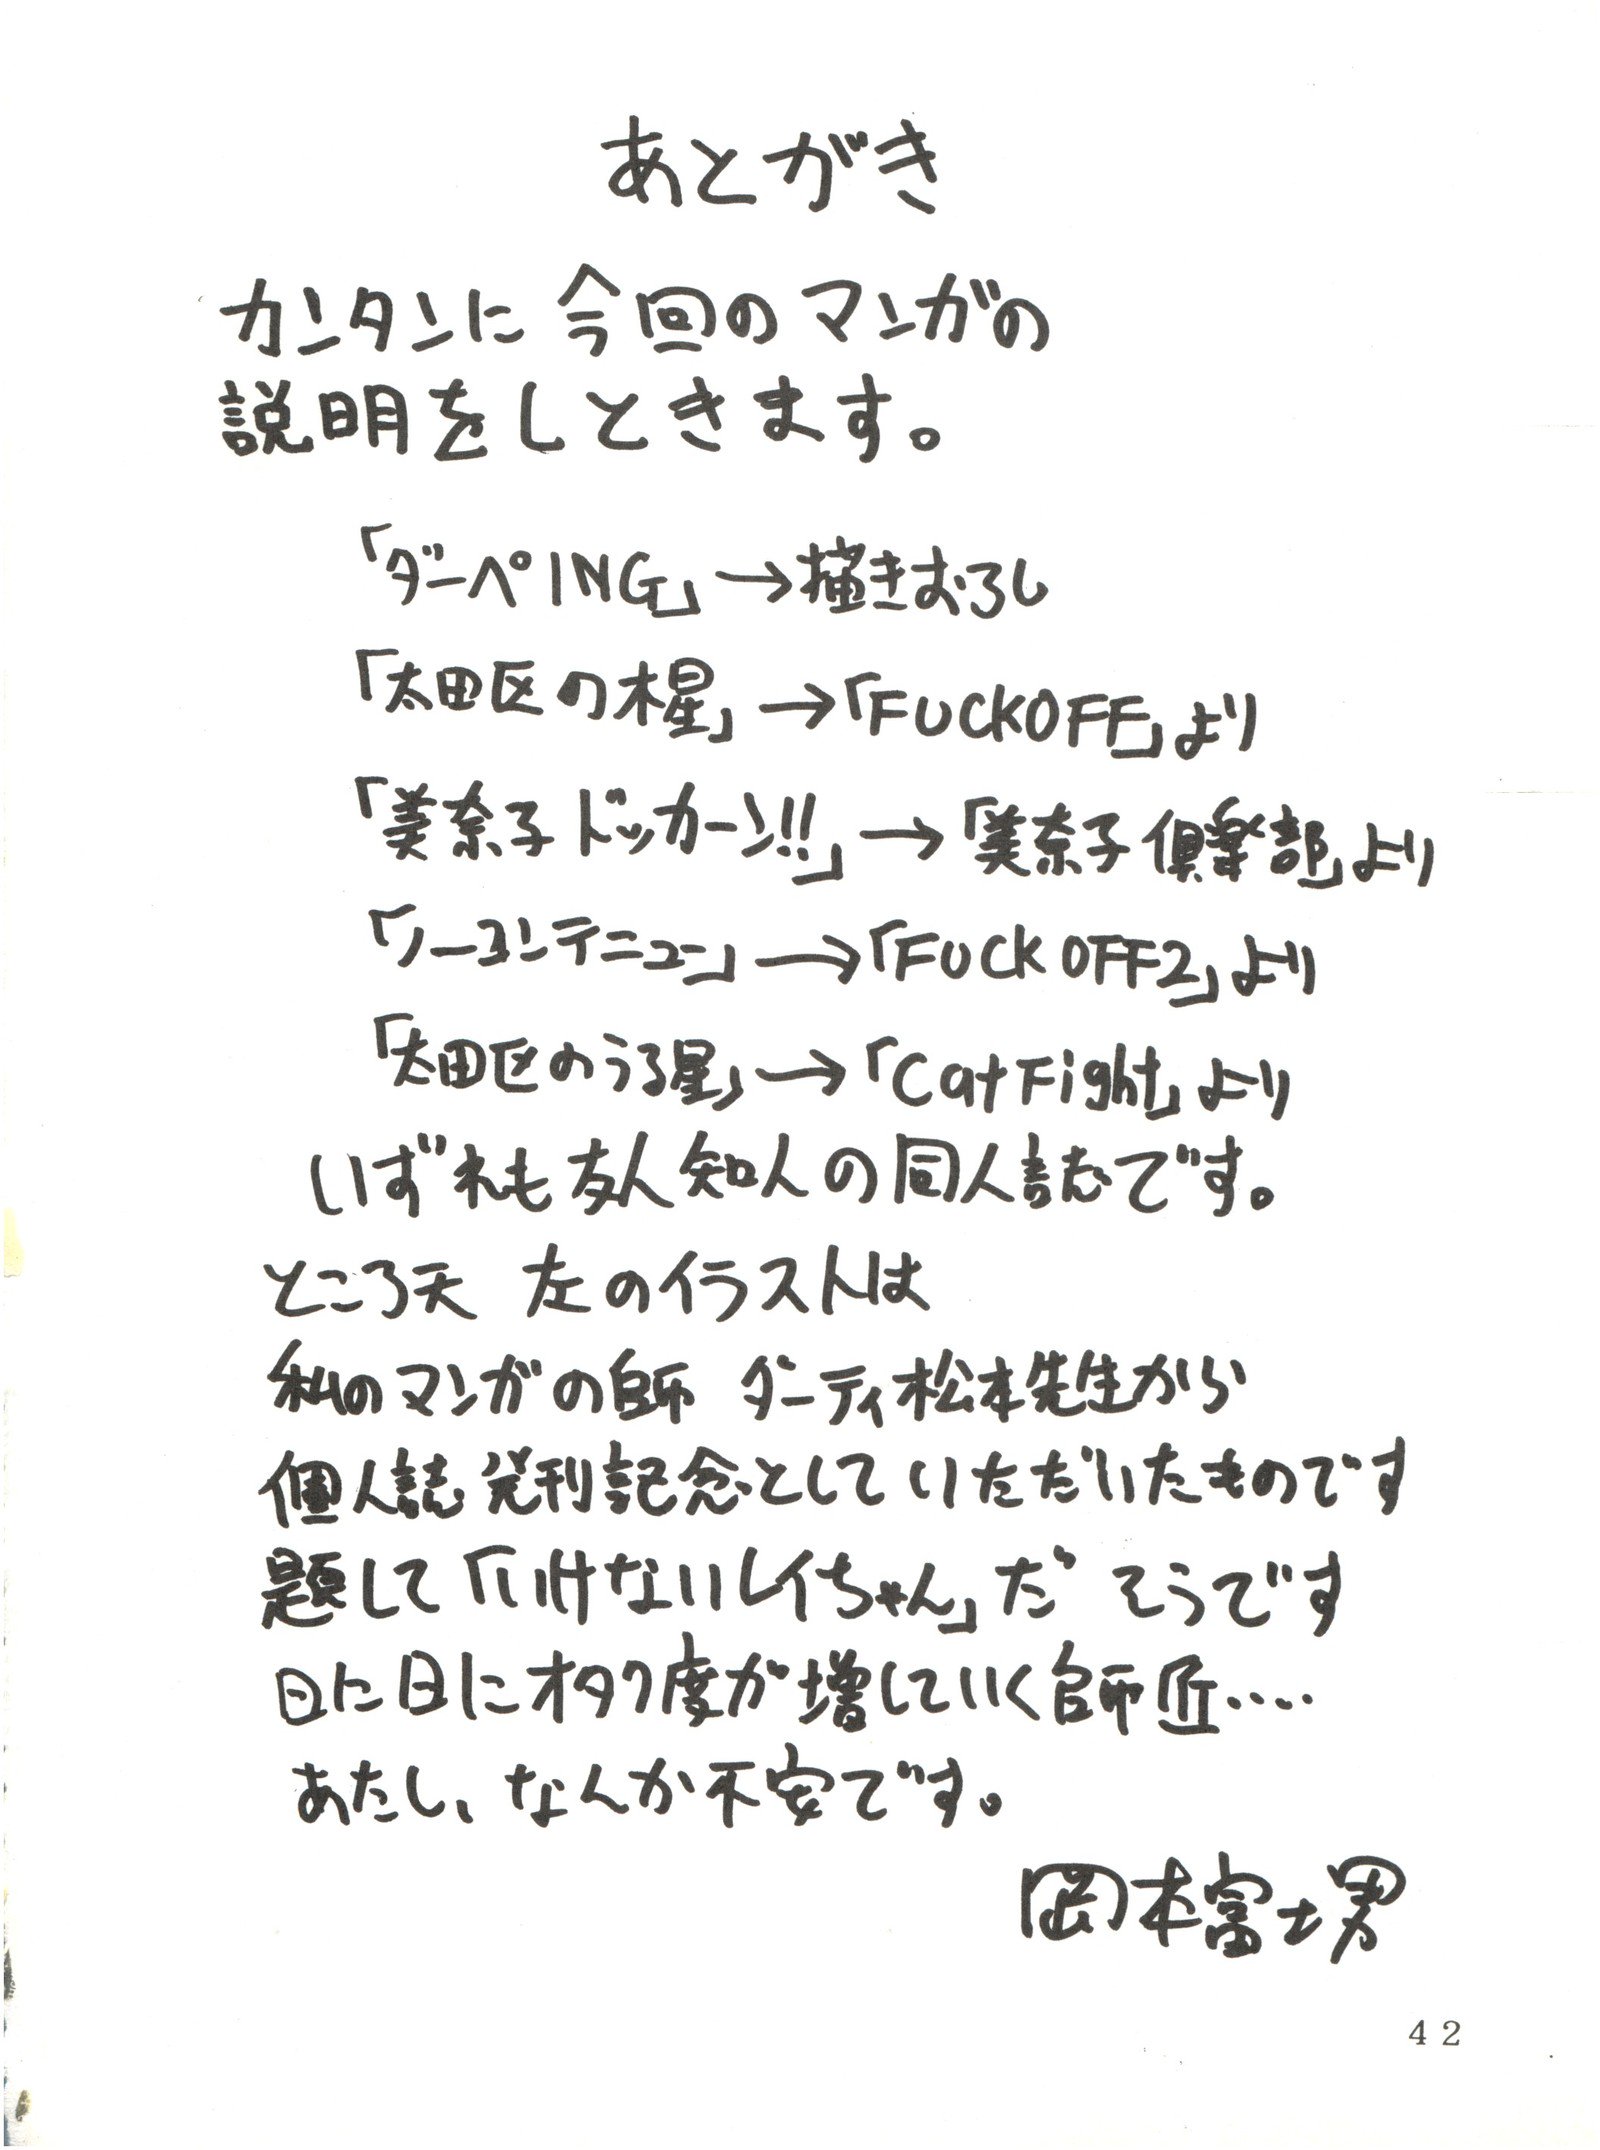 あとがき
カンタンに 今回の マンガの
説明をしときます。
「ダーペING」→描きおろし
「太田区の木星」→「FUCKOFF」より
「美奈子ドッカーン!!」→「美奈子倶楽部」より
「ノーコンテニュー」→「FUCK OFF2」より
「太田区のうる星」→「Cat Fight」より
いずれも友人知人の同人誌です。
ところ天 左のイラストは
私のマンガの師 ダーティ松本先生から
個人誌発刊記念としていただいたものです
題して「いけないレイちゃん」だ そうです
日に日にオタク度が増していく師匠‥‥
あたし、なんか不安です。
岡本富士男
42